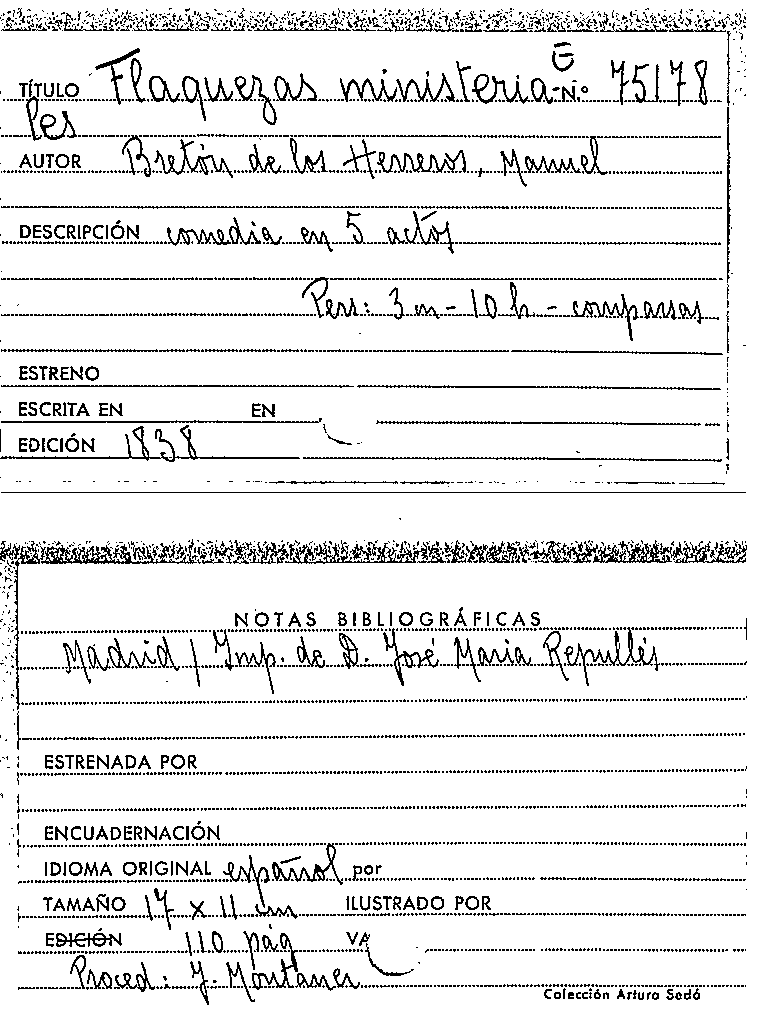 E
TÍTULO Flaquezas ministeria- N.º 75178
les
AUTOR Bretón de los Herreros, Manuel
DESCRIPCIÓN comedia en 5 actos
Pers: 3 m - 10 h - comparsas
ESTRENO
ESCRITA EN EN
EDICIÓN 1838
NOTAS BIBLIOGRÁFICAS
Madrid / Imp. de D. José Maria Repullés
ESTRENADA POR
ENCUADERNACIÓN
IDIOMA ORIGINAL español por
TAMAÑO 17 x 11 cm ILUSTRADO POR
EDICIÓN 110 pág VA
Proced: J. Montaner
Colección Arturo Sedó